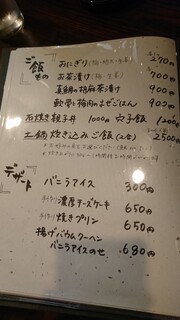 ご飯もの
おにぎり 290
お茶漬け 700
真鯛の胡麻茶漬け 900
軟骨と梅肉のまぜごはん 900
石焼き親子丼 1000円 穴子飯 1200
土鍋炊き込みご飯(2合) 2500
デザート
バニラアイス 300円
手作り 濃厚チーズケーキ 650円
手作り 焼きプリン 650円
揚げバウムクーヘン
バニラアイスのせ 680円